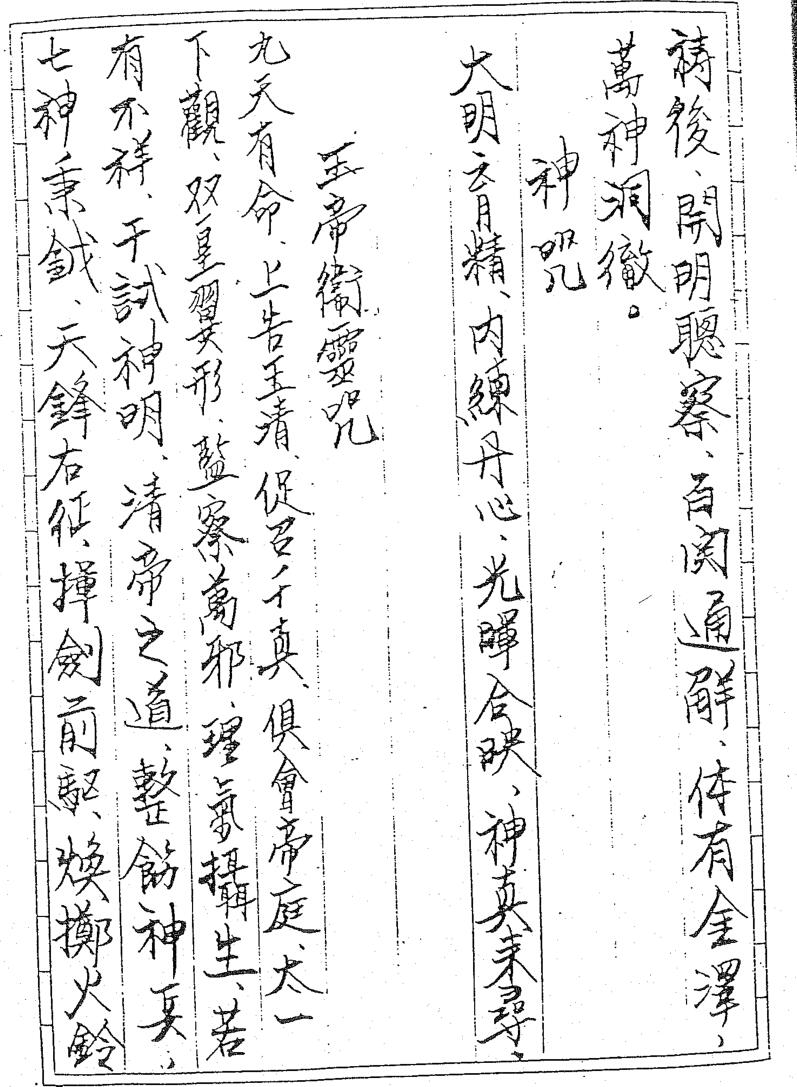 禱後、開明聰察、百関通解、体有金澤、
萬神洞徹。
神咒
大明育精、内練丹心、光暉合映、神真来尋、
玉帝衛靈咒
九天有命、上告玉清、促召千真、俱會帝庭、太一
下觀、双皇翼形、監察萬邪、理氣攝生、若
有不祥、干試神明、清帝之道、整飭神兵、
七神秉鉞、天鋒右征、揮劍前驅、煥擲火鈴